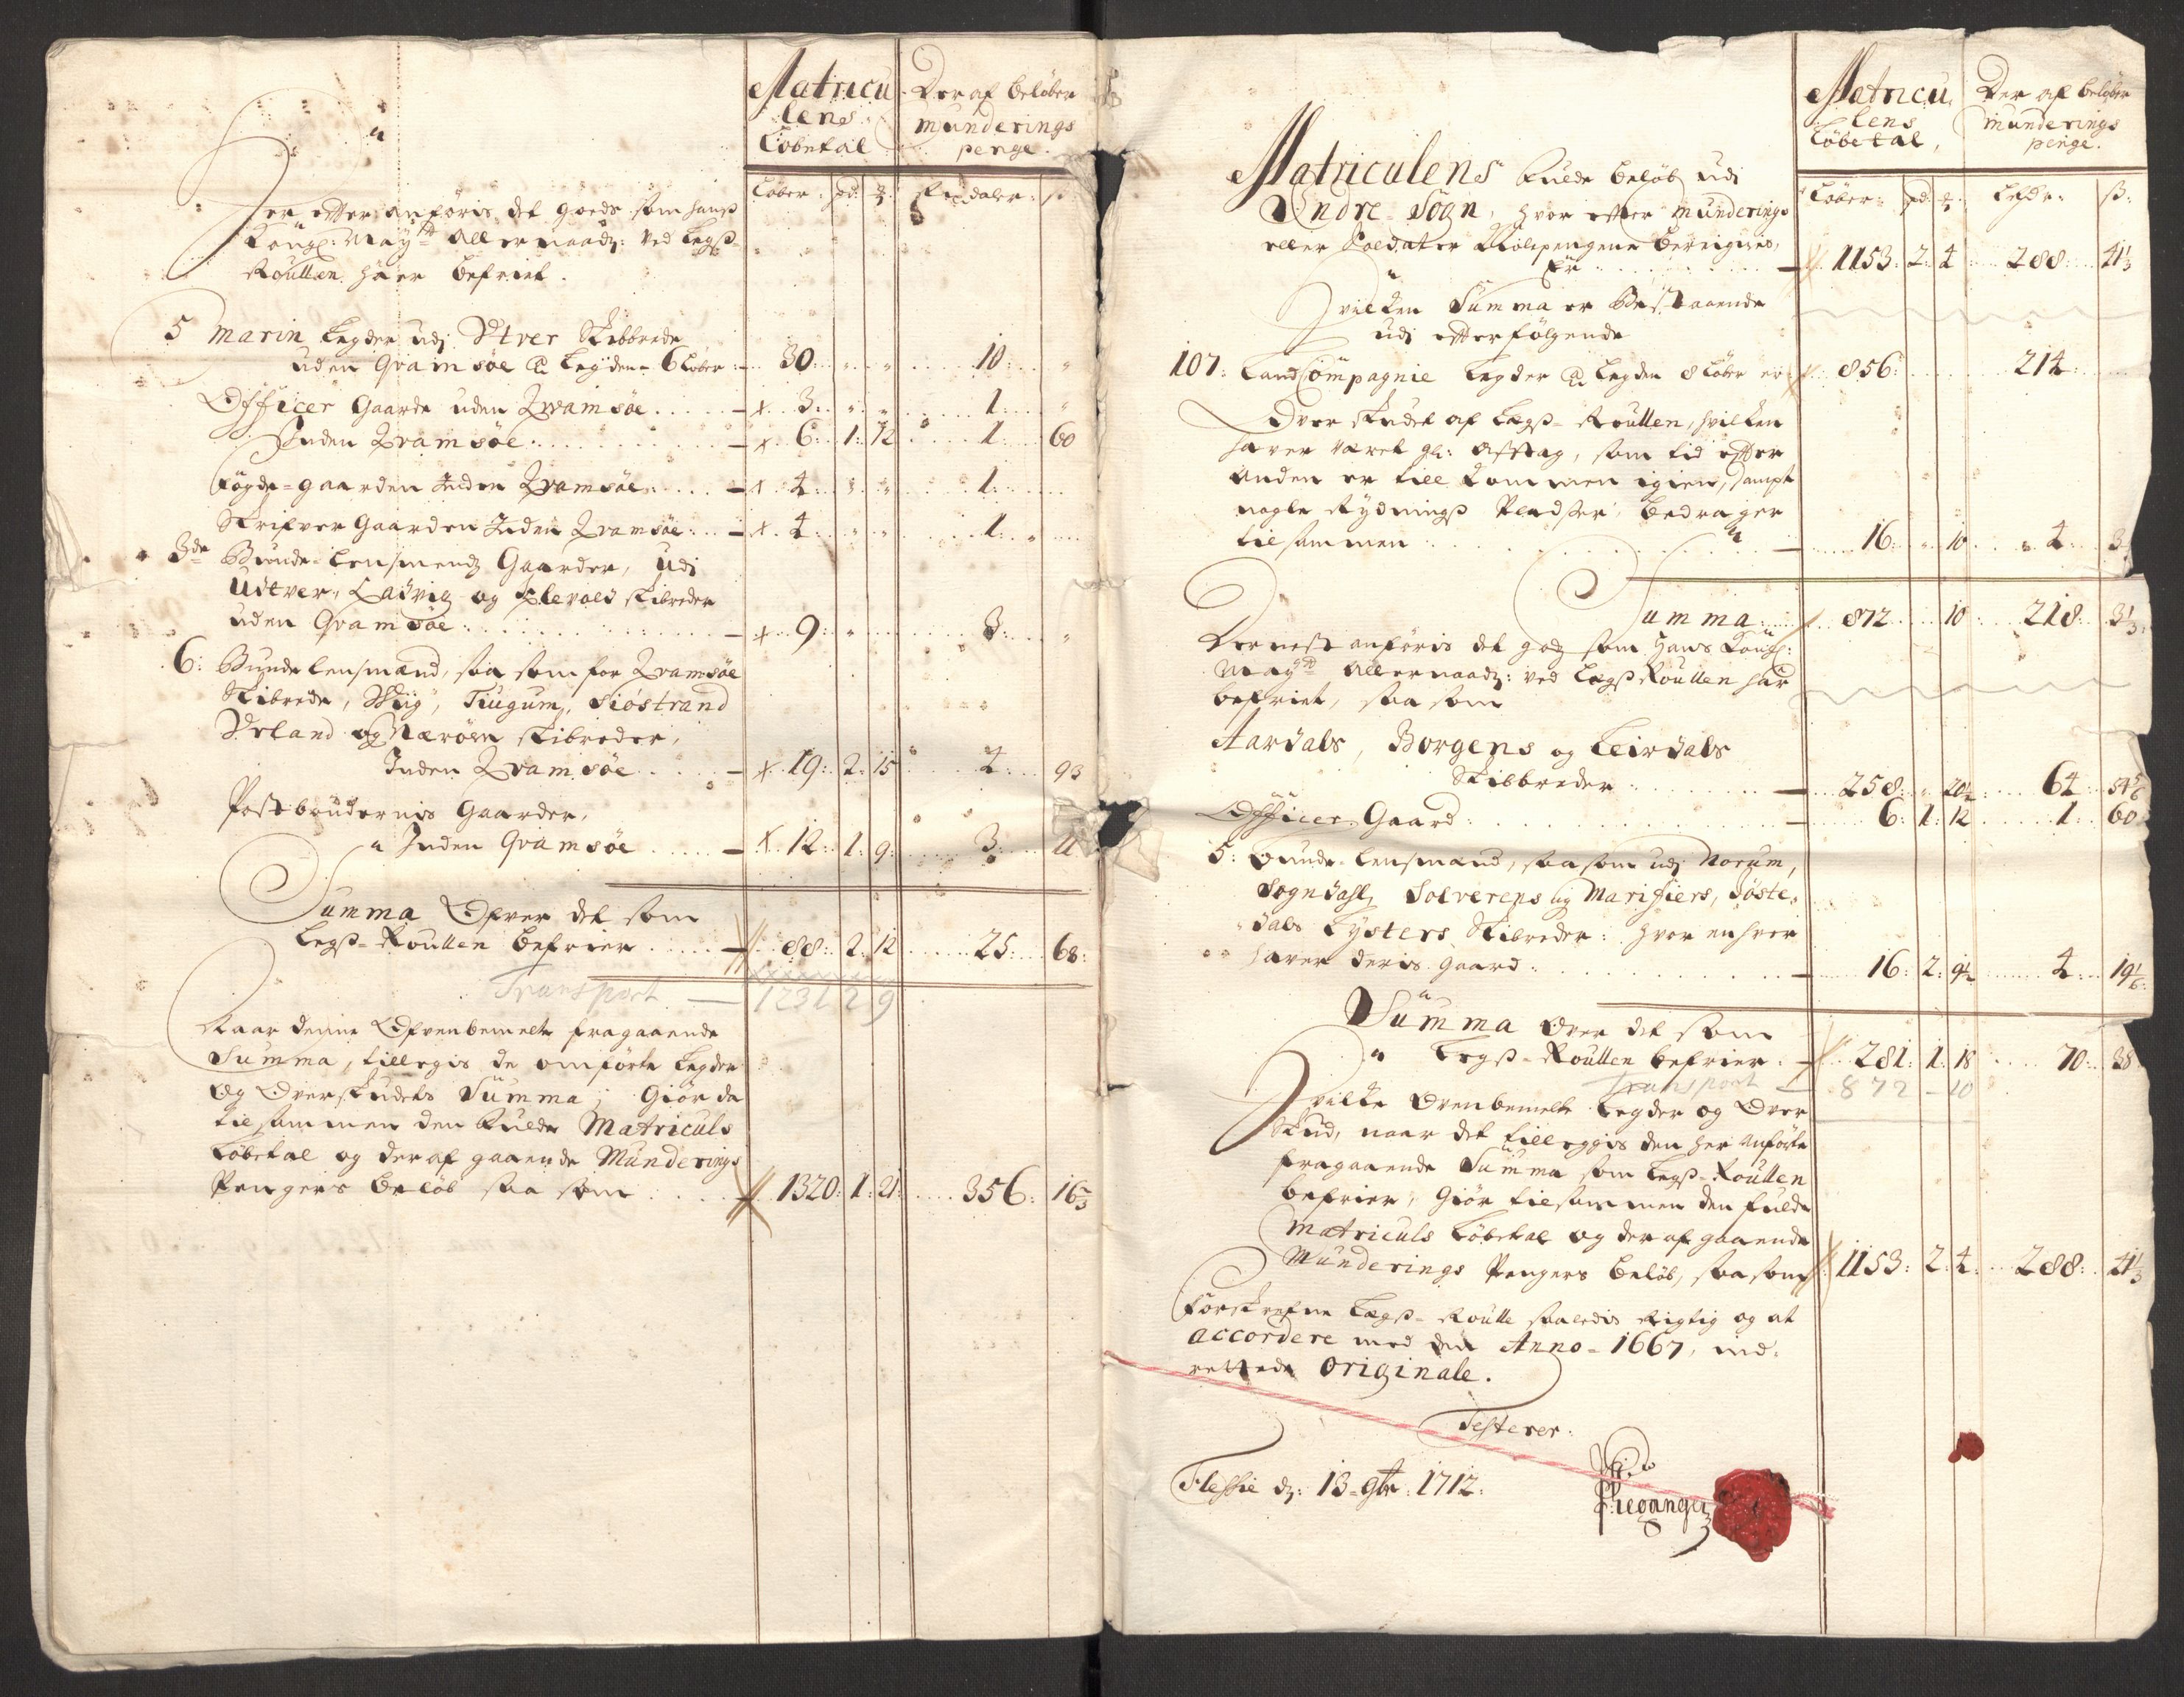 Matricu
lens
Løbetal
Der af beløber
munderings
penge.
Løber: pd: ₰: Rixdaler: ß
Her efter anføris det goeds som hans
Kongl: May:tt Allernaadg: ved Legs-
Roullen haer befriet.
5 Marin Legder udj Ytver Skibbrede
uden Qvamsøe a Legden 6 Løber 30: 10:
Officer Gaarde uden Qvamsøe 3: 1:
Inden Qvamsøe 6: 1: 12 1: 60
Fogde-gaarden Inden Qvamsøe 4: 1:
Skrifver Gaarden Inden Qvamsøe 4: 1:
3de Bunde-Lensmends Gaarder, udi
Udtver, Ladvig og Klevold skibreder
uden Qvamsøe 9: 3:
6: Bunde Lensmænd, saa som for Qvamsøe
Skibrede, Wiig, Tiugum, Siøstrand
Urland og Nærøen skibreder,
Inden Qvamsøe 19: 2: 15 4: 93
Postbøndernis Gaarder,
Inden Qvamsøe 12: 1: 9: 3:
Summa Ofver det som
Legs-Roullen befrier 88: 2: 12 25: 68:
Transport 1231 2 9
Naar denne Ofvenbemelte fragaaende
Summa, tillegis de omførte Legder
og Overskudets Summa; Giør da
tilsammen den fulde Matriculs
Løbetal og deraf gaaende Munderings
Pengers beløb saa som 1320: 1: 21: 356: 16 2/3
Matricu
lens
Løbetal,
Der af beløber
munderings
penge.
Løber: pd: ₰: Rixdr: ß:
Matriculens fulde beløb udi
Indre-Sogn, hvor efter munderings
eller Soldater Kolepengene berignes,
Er 1153: 2: 4 288: 41 1/3
Hvilken Summa er Bestaaende
udi efterfølgende
107: Land Compagnie Legder a Legden 8 Løber er 856: 214:
Overskudet af Legs-Roullen, hvilken
haver været gl: Aftag, som tid efter
anden er till kommen igien, sampt
nogle Rydnings Pladser, bedrager
tilsammen 16: 10 4:
Summa 872 10: 218: 3 1/3
Dernest anføris det gods som Hans Kongl:
May:tt Allernaadg: ved Legs Roullen har
befriet, saa som
Aardals, Borgens og Leirdals
Skibbreder 258: 20 1/2 64
Officer Gaard 6: 1: 12 1: 60
5: Bunde-Lensmænd, saa som udj Norum,
Sogndahl, Solverens og Marifiers, Jøste-
dals Lysters Skibreder: hver en hver
haver deris gaard 16: 2: 9 1/2 4: 19 1/6
Summa Over det som
Legs-Roullen befrier 281: 1: 18 70: 38
Transport 872 - 10
Hvilke Ovenbemelte Legder og Over
skud, naar det tilleggis den her anførte
fragaaende Summa som Legs-Roullen
befrier, Giør tilsammen den fulde
Matriculs Løbetal og der af gaaende
Munderings Pengers beløb, saa som 1153: 2: 4: 288: 41 1/3
Forskrefne Legs-Roulle saaledis Rigtig og at
accordere med den Anno-1667, ind-
rettede originale.
Testerer.
Flessie d: 13-9br: 1712.